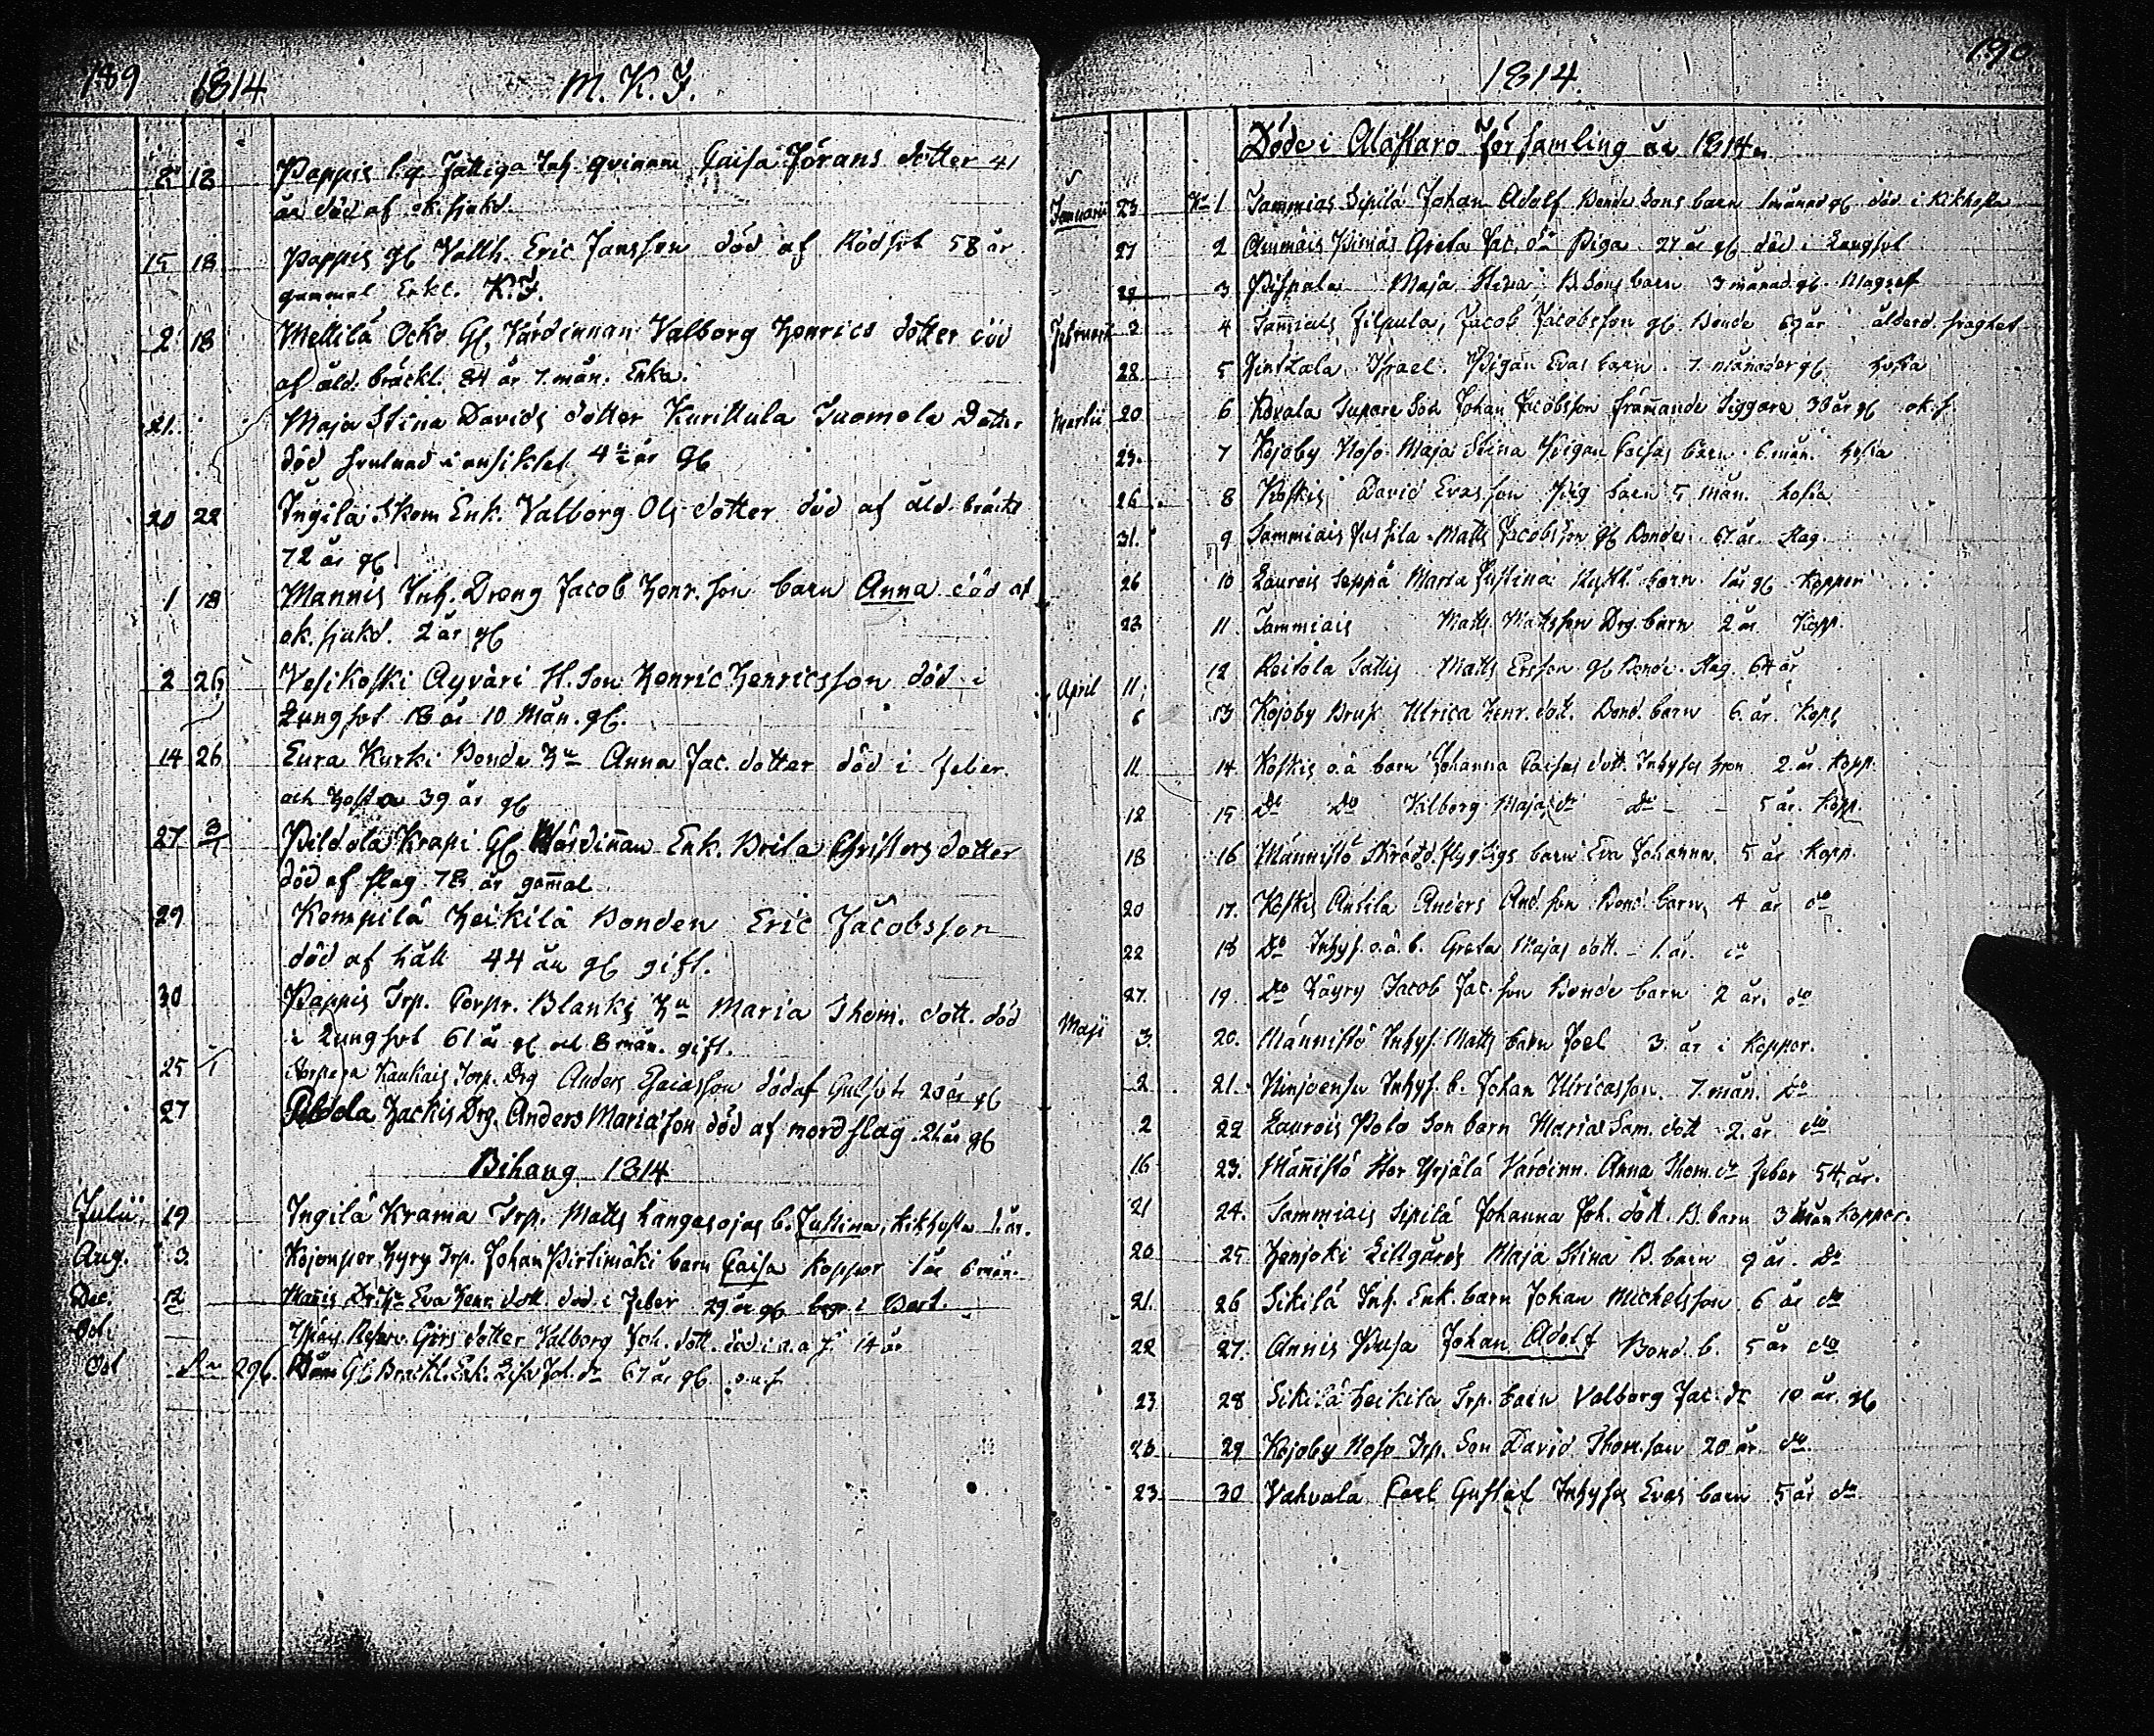 189 1814 M. K. F.
8 18 Pappis Fattiga Inh. qvinnan Caisa Jörans dotter 41
år död af ok. sjukd.
15 18 Pappis gl. Eric Jansson död af Rödsot 58 år
gammal Enkl. K. F.
2 18 Mellilä Ocko Gl. Värdinnan Valborg Henrics dotter död
af åld. bräckl. 84 år 7 mån. Enka.
21. Maja Stina Davids dotter Kurittula Tuomola Dotter
död i ansiktet 4½ år gl
20 22 Ingila Enk. Valborg Ols dotter död af åld. bräckl
72 år gl
1 18 Mannis Inh. Dreng Jacob Henr. son barn Anna död af
ok. sjukd. 2 år gl
2 26 Vesikoski Äyväri H. Son Henric Henricsson död i
Lungsot 18 år 10 Mån. gl.
14 26 Eura Kurki Bonde Hu Anna Jac. dotter död i feber
och hosta 39 år gl
27 3/1 Krapi Gl. Värdinnan Enk. Brita Christers dotter
död af slag 78 år gammal
29 Kempilä Heikilä Bonden Eric Jacobsson
död af håll 44 år gl gift.
30 Pappis Trp. Corpr. Blanks Hu Maria Thom. dott. död
i Lungsot 61 år gl och 8 mån. gift.
25 Kaukais Torp. Drg Anders Caisasson död af Gulsot 20 år gl
27 Peldola Hackis Drg. Anders Mariason död af mordslag 21 år gl
Bihang 1814
Julii 19 Ingilä Krama Trp. Matts Langasojas b. Justina, Kikhosta 1 år.
Aug. 3. Hyry Trp. Johan Pirtimäki barn Caisa Koppor 1 år 6 mån.
Dec. 12 Mannis Hu Eva Henr. dott död i feber 29 år gl begr. i
Oct. dotter Valborg Joh. dott. död 14 år
Oct 296. Gl. Enk. Lisa Joh. dr 67 år gl
1814. 190.
Döde i Alastaro Församling år 1814.
Januari 23 No 1 Tammiais Sipilä Johan Adolf Bonde Sons barn 1 månad gl död i Kikhosta
27 2 Ämmäis Greta Jac. dr Piga 27 år gl död i Lungsot
29 3 Pispala Maja Stina B. Sons barn 3 månad. gl. Magref
Februarii 2 4 Tammiais Filpula, Jacob Jacobsson gl Bonde 69 år
28 5 Israel Pigan Evas barn 7 månader gl hosta
Martii 20 6 Johan Jacobsson främande Tiggare 38 år gl ok. s.
23. 7 Kojoby Noso Maja Stina Pigan Caisas barn 6 mån. hosta
26. 8 Koskis David Evasson Pig barn 5 mån. hosta
31. 9 Tammiais Jussila Matts Jacobsson gl Bonde 67 år Slag.
26 10 Laurois Seppä Maria Justina barn 1 år gl. Koppor
23 11. Tammiais Matts Mattsson Drg. barn 2 år Kopp.
April 11. 12 Reitola Sallis Matts Ersson gl Bonde. Slag. 64 år
6 13 Kojoby Brusi Ulrica Henr. dott. Bond. barn 6 år. Kopp
11 14 Koskis o.ä barn Johanna Caisas dott. Inhyses hion 2 år. Kopp.
12 15 Do Do Valborg Majas dr Do — 5 år. Kopp.
18 16 Männistö barn Eva Johanna 5 år Kopp.
20 17. Koskis Antila Anders And. son Bond. barn 4 år do
22 18 Do Inhys. o.ä. b. Greta Majas dott. — 1 år. do
27. 19. Do Jacob Jac. son Bonde barn 2 år. do
Maji 3. 20. Männistö Inhys. Matts barn Joel 3 år i Koppor.
2 21. Ninjoensu Inhys. b. Johan Ulricasson. 7 mån. Do
2 22 Laurois Polo Son barn Maria Sam. dott 2 år do
16 23. Männistö Yrjälä Värdinn. Anna Thom. dr Feber 54 år.
21 24. Tammiais Sipilä Johanna Joh. dott. B. barn 3 mån Koppor.
20 25 Henjoki Lillgårds Maja Stina B. barn 9 år. Do
21. 26 Sikilä Inh. Enk. barn Johan Michelsson 6 år do
22 27. Annis Johan Adolf Bond. b. 5 år do
23 28 Sikilä Heikilä Trp. barn Valborg Jac. dr 10 år. gl
23 29 Kojoby Noso Trp. Son David Thom. son 20 år do.
23. 30 Vahvala Carl Gustaf Inhyses Evas barn 5 år do.